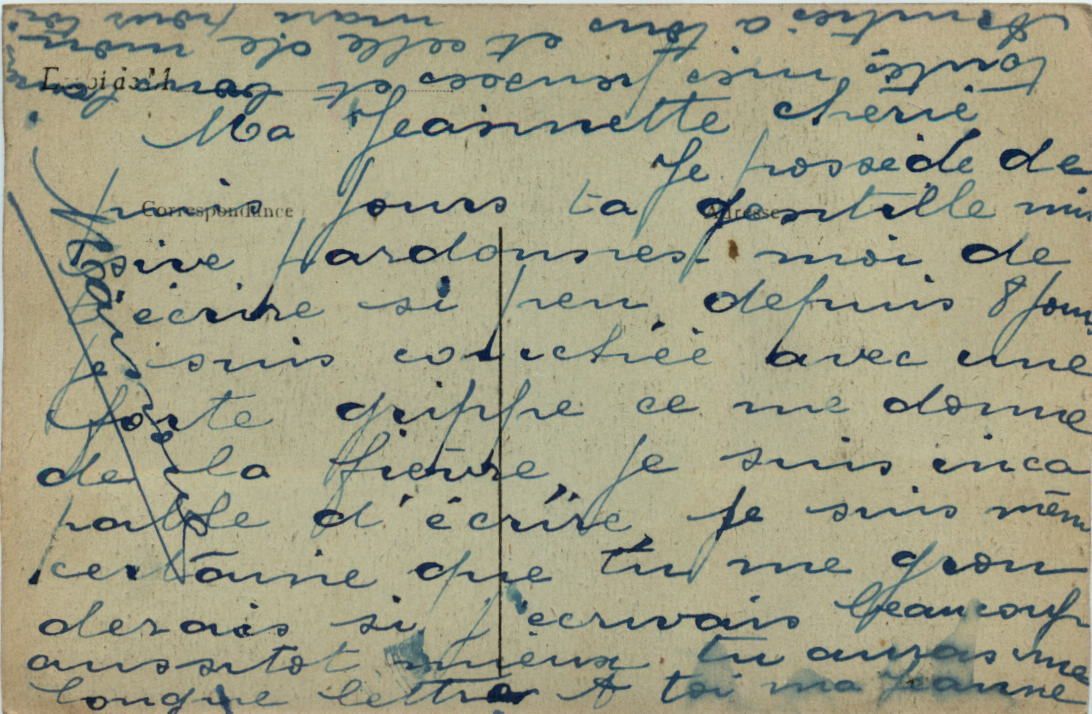 Ma Jeannette chérie
Je possède de
puis jours ta gentille mi
sive pardonnes moi de
t'écrire si peu depuis 8 jours
je suis couchéé avec une
forte grippe ce me donne
de la fièvre, je suis inca
pable d'écrire je suis même
certaine que tu me gron
derais si j'ecrivais beaucoup
aussitot mieux tu auras une
longue lettre A toi ma Jeanne
toutes mes pensees et
Amities a tous et celle de mon
mari pour toi
Correspondance
Adresse